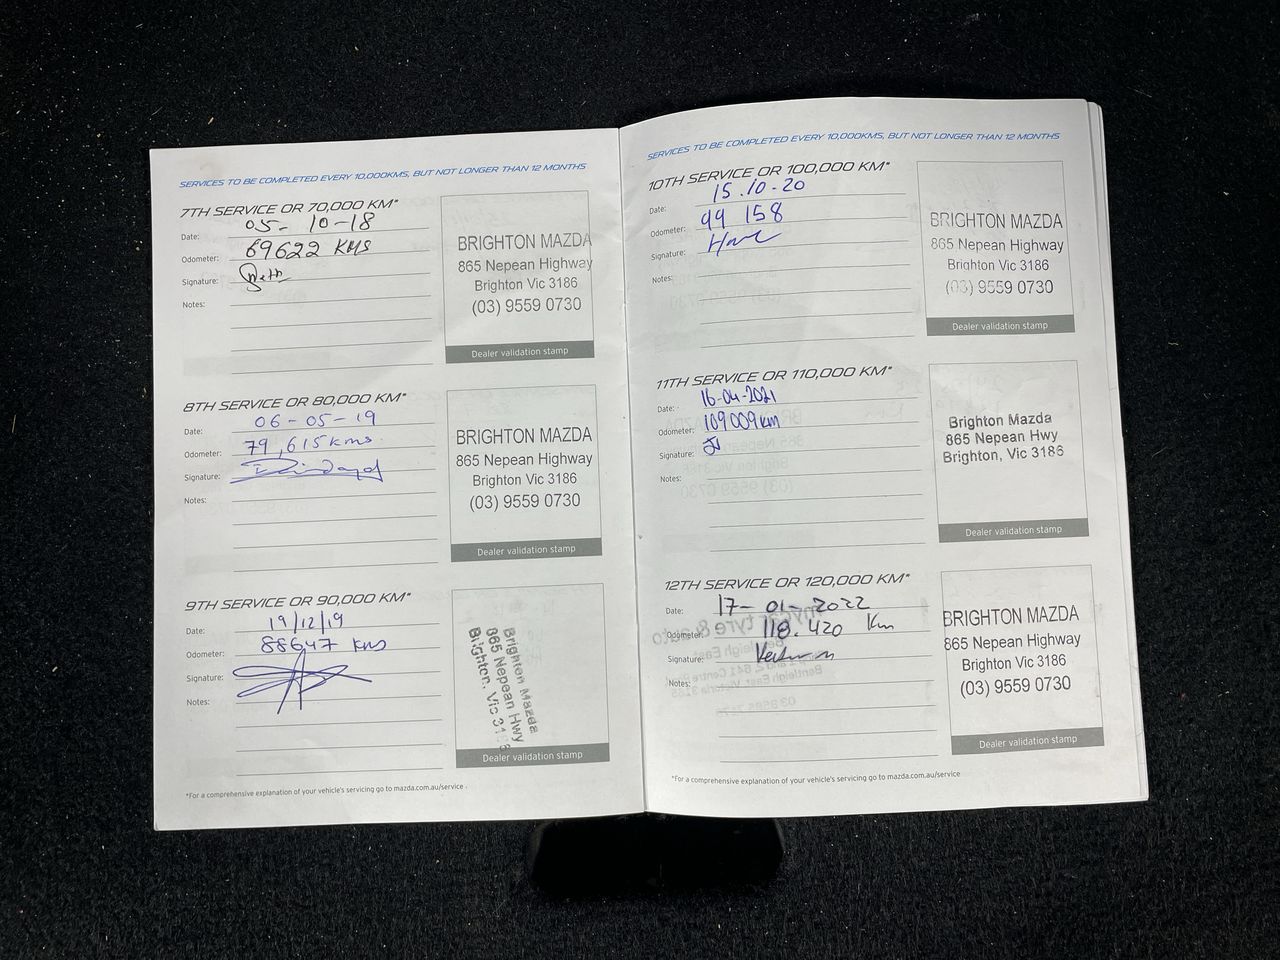 SERVICES TO BE COMPLETED EVERY 10,000KMS, BUT NOT LONGER THAN 12 MONTHS
7TH SERVICE OR 70,000 KM*
Date: 05-10-18
Odometer: 69622 KMS
Signature:
Notes:
BRIGHTON MAZDA
865 Nepean Highway
Brighton Vic 3186
(03) 9559 0730
Dealer validation stamp
8TH SERVICE OR 80,000 KM*
Date: 06-05-19
Odometer: 79,615 kms
Signature:
Notes:
BRIGHTON MAZDA
865 Nepean Highway
Brighton Vic 3186
(03) 9559 0730
Dealer validation stamp
9TH SERVICE OR 90,000 KM*
Date: 19/12/19
Odometer: 88647 KMS
Signature:
Notes:
Brighton Mazda
865 Nepean Hwy
Brighton, Vic 3186
Dealer validation stamp
*For a comprehensive explanation of your vehicle's servicing go to mazda.com.au/service.
SERVICES TO BE COMPLETED EVERY 10,000KMS, BUT NOT LONGER THAN 12 MONTHS
10TH SERVICE OR 100,000 KM*
Date: 15.10.20
Odometer: 99 158
Signature:
Notes:
BRIGHTON MAZDA
865 Nepean Highway
Brighton Vic 3186
(03) 9559 0730
Dealer validation stamp
11TH SERVICE OR 110,000 KM*
Date: 16-04-2021
Odometer: 109009km
Signature:
Notes:
Brighton Mazda
865 Nepean Hwy
Brighton, Vic 3186
Dealer validation stamp
12TH SERVICE OR 120,000 KM*
Date: 17-01-2022
Odometer: 118.420 Km
Signature:
Notes:
BRIGHTON MAZDA
865 Nepean Highway
Brighton Vic 3186
(03) 9559 0730
Dealer validation stamp
*For a comprehensive explanation of your vehicle's servicing go to mazda.com.au/service